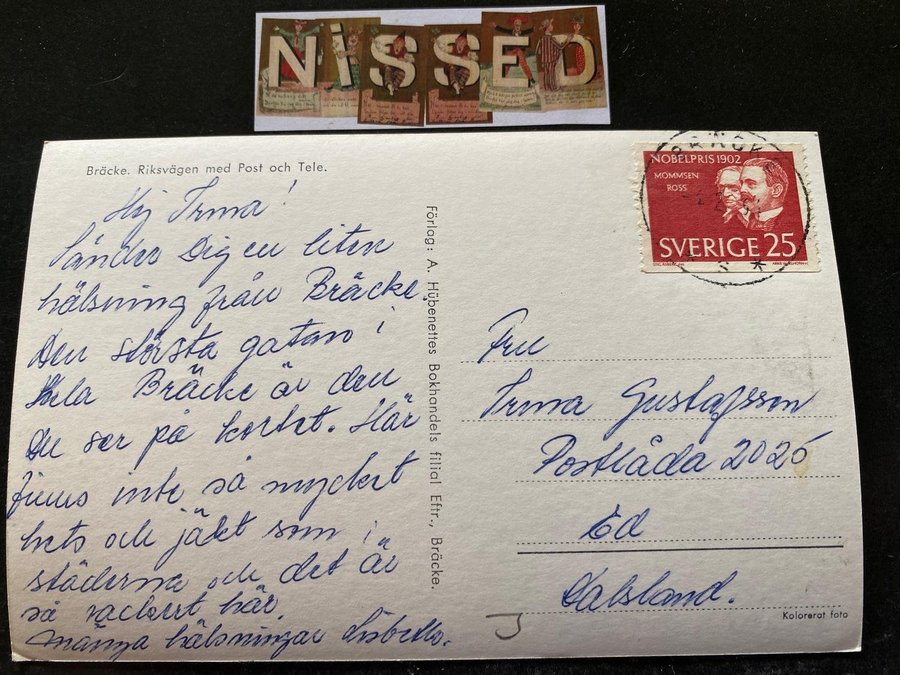 NISSED
Bräcke. Riksvägen med Post och Tele.
Hej Irma!
Sänder Dig en liten
hälsning från Bräcke.
Den största gatan i
hela Bräcke är den
Du ser på kortet. Här
finns inte så mycket
hets och jäkt som i
städerna och det är
så vackert här.
Många hälsningar Lisbeth.
Förlag: A. Hübenettes Bokhandels filial Eftr., Bräcke.
BRÄCKE
NOBELPRIS 1902
MOMMSEN
ROSS
SVERIGE 25
Fru
Irma Gustafsson
Postlåda 2025
Ed
Dalsland.
Kolorerat foto